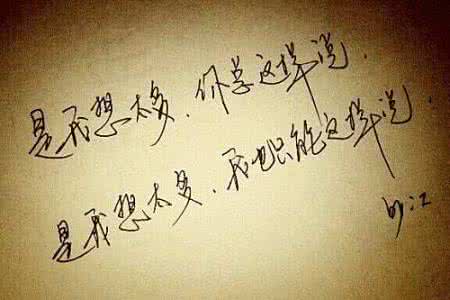 是我想太多，你总这样说．
是我想太多，我也只能这样说．